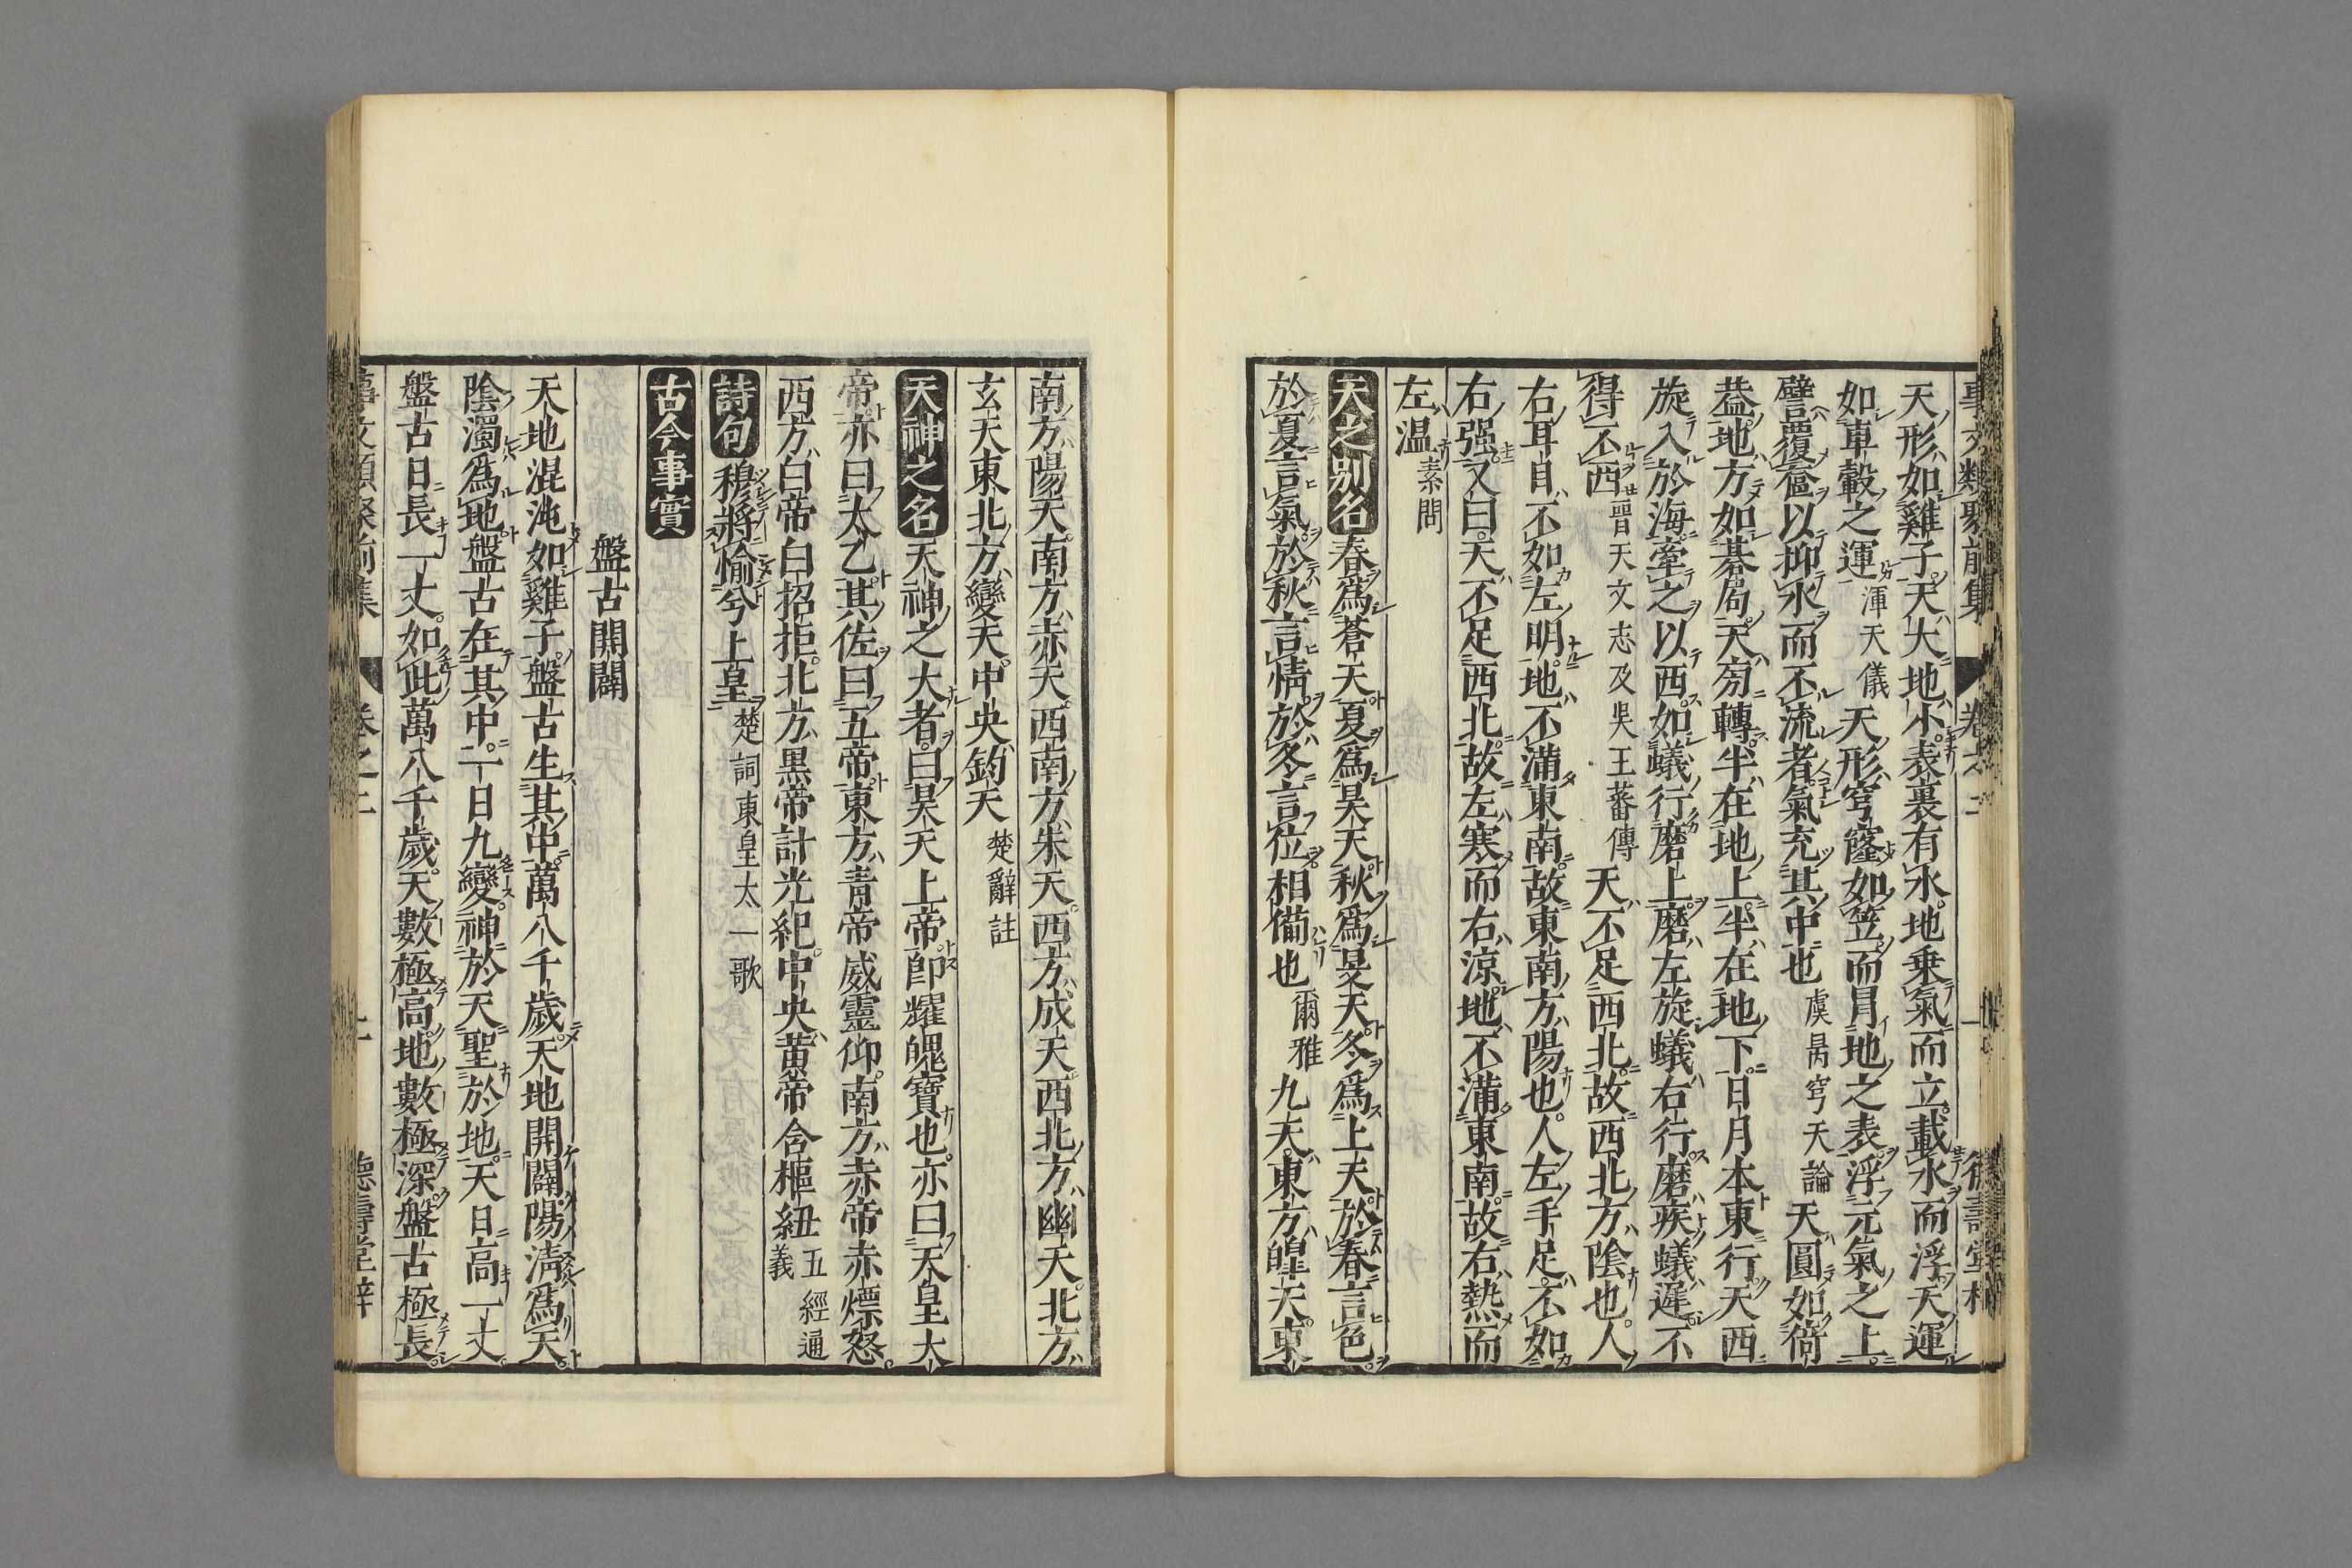 天形如雞子天大地小表裏有水地乗氣而立載水而浮天運
如車轂之運渾天儀天形穹窿如笠而冒地之表浮元氣之上
譬覆奩以抑水而不流者氣充其中也虞昺穹天論天圓如倚
葢地方如碁局天旁轉半在地上半在地下日月本東行天西
旋入於海牽之以西如蟻行磨上磨左旋蟻右行磨疾蟻遲不
得不西晉天文志及吳王蕃傳天不足西北故西北方陰也人
右耳目不如左明地不滿東南故東南方陽也人左手足不如
右强又曰天不足西北故左寒而右涼地不滿東南故右熱而
左温素問
天之别名春爲蒼天夏爲昊天秋爲旻天冬爲上天於春言色
於夏言氣於秋言情於冬言位相備也爾雅九天東方皥天東
南方陽天南方赤天西南方朱天西方成天西北方幽天北方
玄天東北方變天中央鈞天楚辭註
天神之名天神之大者曰昊天上帝卽耀魄寶也亦曰天皇大
帝亦曰太乙其佐曰五帝東方青帝威靈仰南方赤帝赤熛怒
西方白帝白招拒北方黒帝計光紀中央黄帝含樞紐五經通義
詩句穆將愉兮上皇楚詞東皇太一歌
古今事實
盤古開闢
天地混沌如雞子盤古生其中萬八千歲天地開闢陽淸爲天
陰濁爲地盤古在其中一日九變神於天聖於地天日高一丈
盤古日長一丈如此萬八千歲天數極高地數極深盤古極長